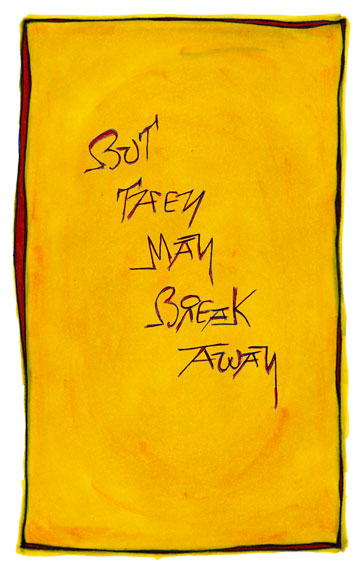 BUT
THEY
MAY
BREAK
AWAY